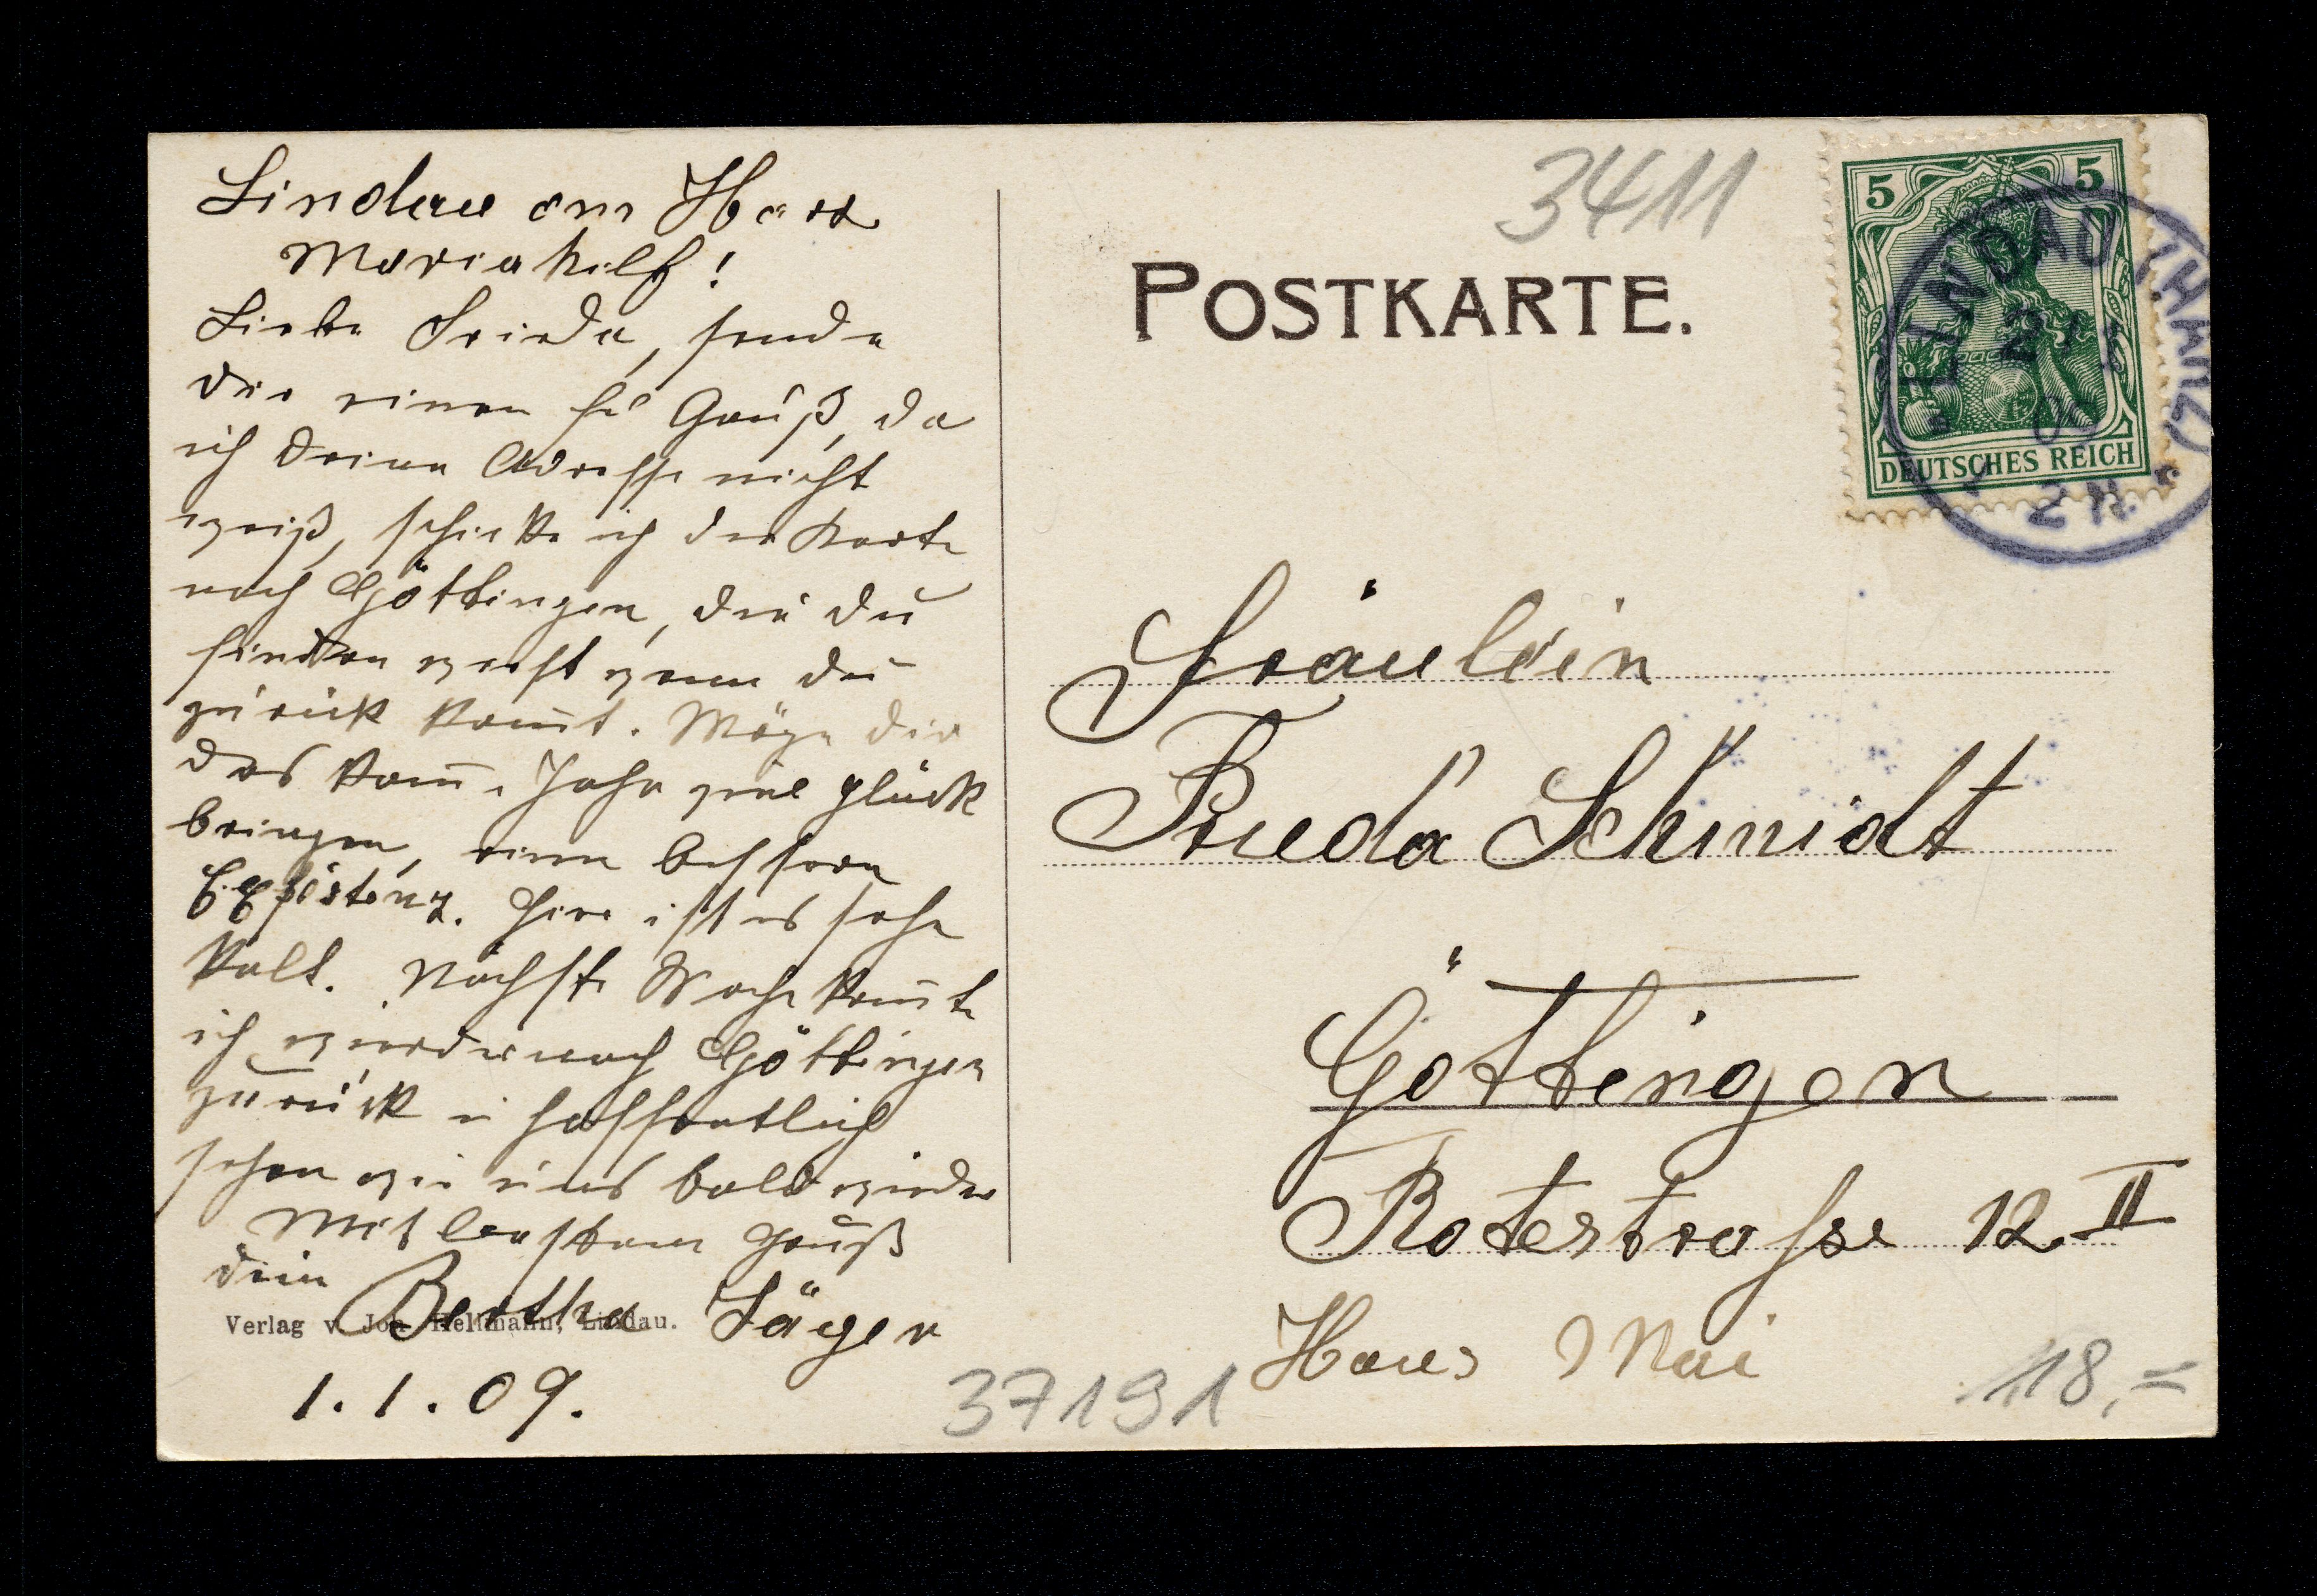 Lindau am Harz
Mariahilf!
Liebe Frieda, sende
dir einen Gruß, da
ich deine Adresse nicht
weiß, schicke ich die Karte
nach Göttingen, die du
finden werst wenn du
zurück kom̄t. Möge dir
das kom̄. Jahr viel glück
bringen, einen bessern
Existenz. Hier ist es sehr
kalt. Nächste Woche kom̄te
ich wieder nach Göttingen
zurück u hoffentlich
sehen wir uns bald wieder
Mit bestem Gruß
dein
Bertha Jäger
Verlag v. Joh. Hellmann, Lindau.
1.1.09.
3411
POSTKARTE.
5 5
DEUTSCHES REICH
LINDAU (HARZ)
Fräulein
Frieda Schmidt
Göttingen
Rotestrasse 12 II
Haus Mai
37191
118,=